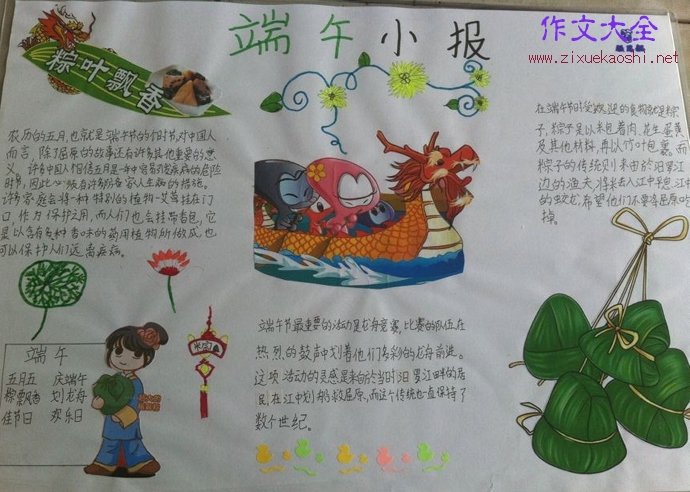 端午小报
作文大全
www.zixuekaoshi.net
粽叶飘香
农历的五月,也就是端午节的个时节,对中国人
而言,除了屈原的故事还有许多其他重要的意
义。许多中国人相信五月是一年中容易引发疾病的危险
时节,因此必须有许多防备家人生病的措施。
许多家庭会将一种特别的植物-艾草挂在门
口,作为保护之用,而人们也会挂带香包,它
是以含有多种香味的药用植物所做成,也
可以保护人们远离疾病。
在端午节时受欢迎的食物就是粽
子,粽子是以米包着肉、花生、蛋黄
及其他材料,再以竹叶包裹。而
粽子的传统则来由於汨罗江
边的渔夫,将米丢入江中平息江中
的蛟龙,希望他们不要将屈原吃
掉。
端午节最重要的活动是龙舟竞赛,比赛的队伍在
热烈的鼓声中划着他们多彩的龙舟前进。
这项活动的灵感是来自於当时汨罗江畔的居
民,在江中划船救屈原,而这个传统也一直保持了
数个世纪。
端午
五月五 庆端午
粽飘香 划龙舟
佳节日 欢乐日